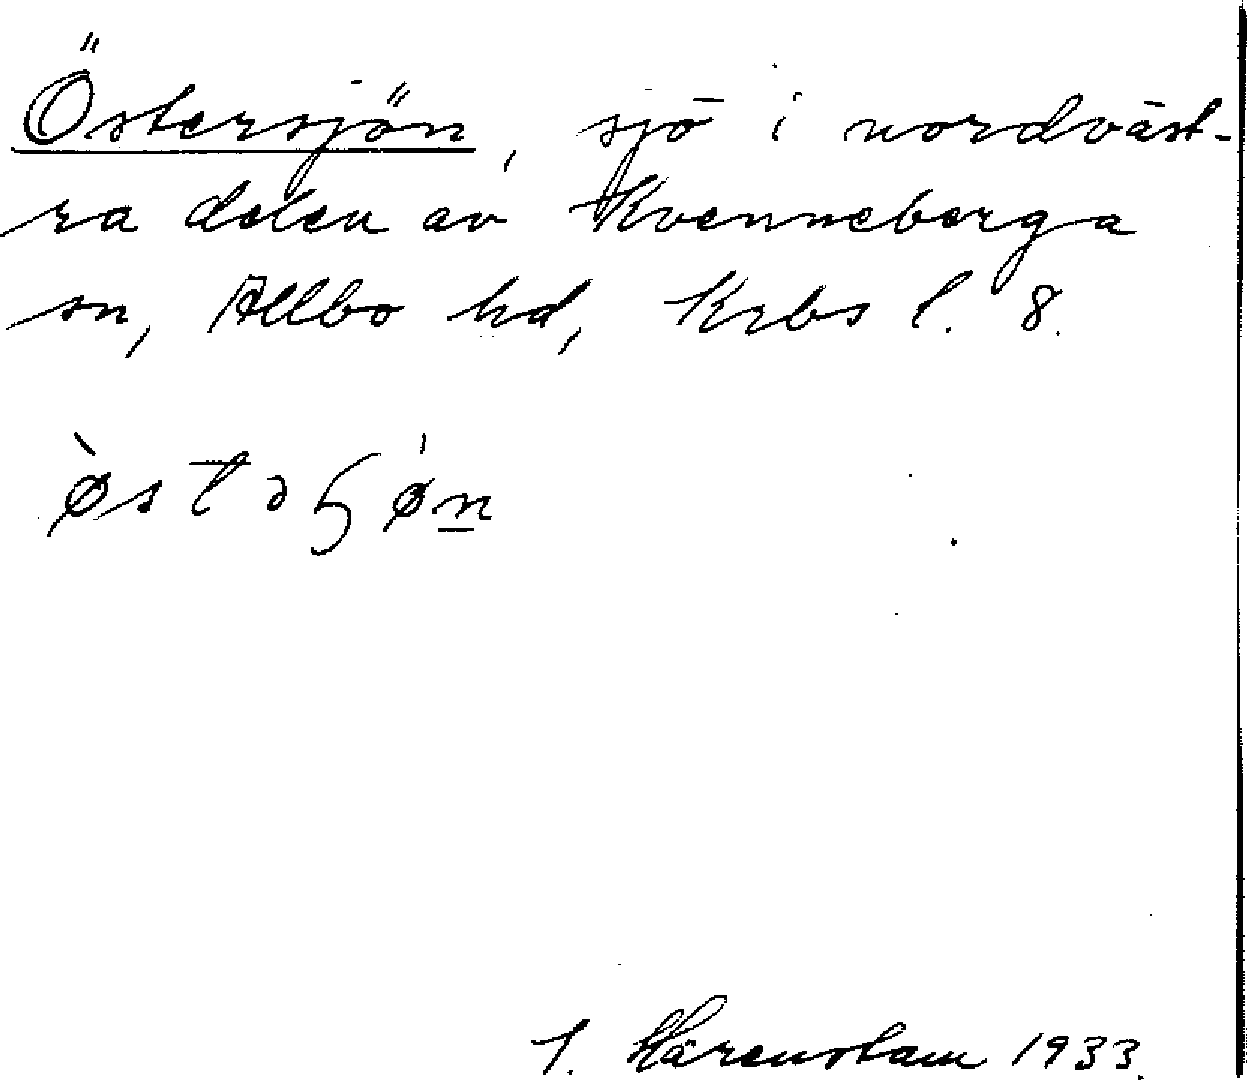 Östersjön, sjö i nordväst-
ra delen av Kvenneberga
sn, Allbo hd, Krbs l. 8.
Härenstam 1933.